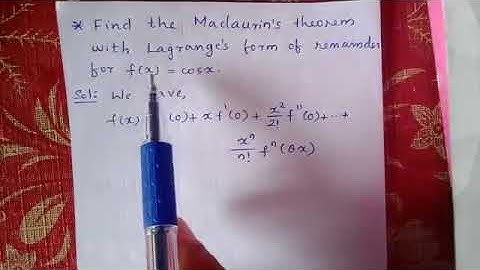 * Find the Maclaurin's theorem
with Lagrange's form of remainder
for f(x) = cosx.
Sol: We have,
f(x) (0) + x f'(0) + x²/2! f''(0) + --- +
xⁿ/n! fⁿ(θx)